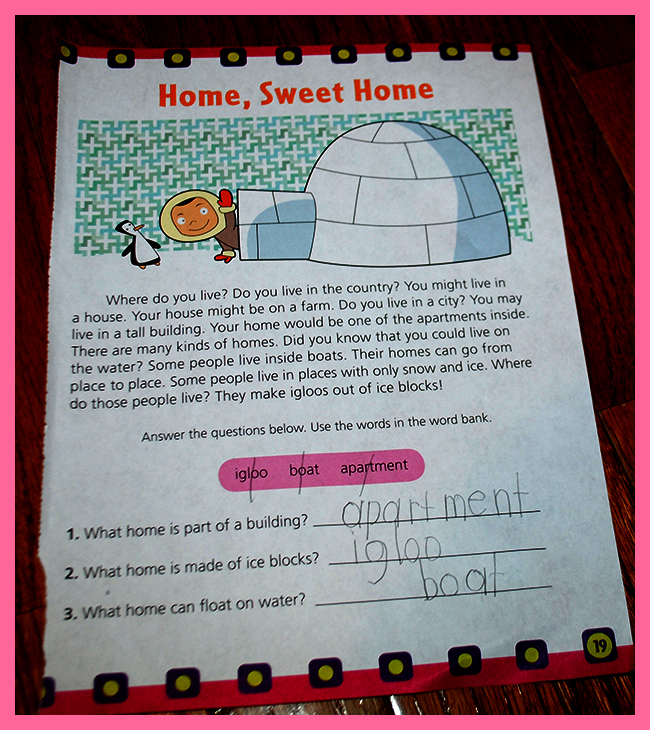 Home, Sweet Home
Where do you live? Do you live in the country? You might live in
a house. Your house might be on a farm. Do you live in a city? You may
live in a tall building. Your home would be one of the apartments inside.
There are many kinds of homes. Did you know that you could live on
the water? Some people live inside boats. Their homes can go from
place to place. Some people live in places with only snow and ice. Where
do those people live? They make igloos out of ice blocks!
Answer the questions below. Use the words in the word bank.
igloo boat apartment
1. What home is part of a building? apartment
2. What home is made of ice blocks? igloo
3. What home can float on water? boat
19